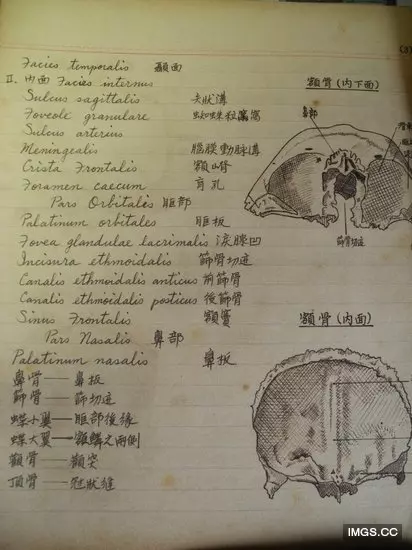 Facies temporalis 顳面
II. 內面 Facies internus
Sulcus sagittalis 矢狀溝
Foveole granulare 蜘蛛粒窩
Sulcus arterius
Meningealis 腦膜動脈溝
Crista Frontalis 額嵴
Foramen caecum 盲孔
Pars Orbitales 眶部
Palatinum orbitales 眶板
Fovea glandulae lacrimalis 淚腺凹
Incisura ethmoidalis 篩骨切迹
Canalis ethmoidalis anticus 前篩骨
Canalis ethmoidalis posticus 後篩骨
Sinus Frontalis 額竇
Pars Nasalis 鼻部
Palatinum nasalis 鼻板
鼻骨——鼻板
篩骨——篩切迹
蝶小翼——眶部後緣
蝶大翼——額鱗之兩側
顴骨——顴突
頂骨——冠狀縫
額骨(內下面)
鼻部
篩骨切迹
額骨(內面)
IMGS.CC